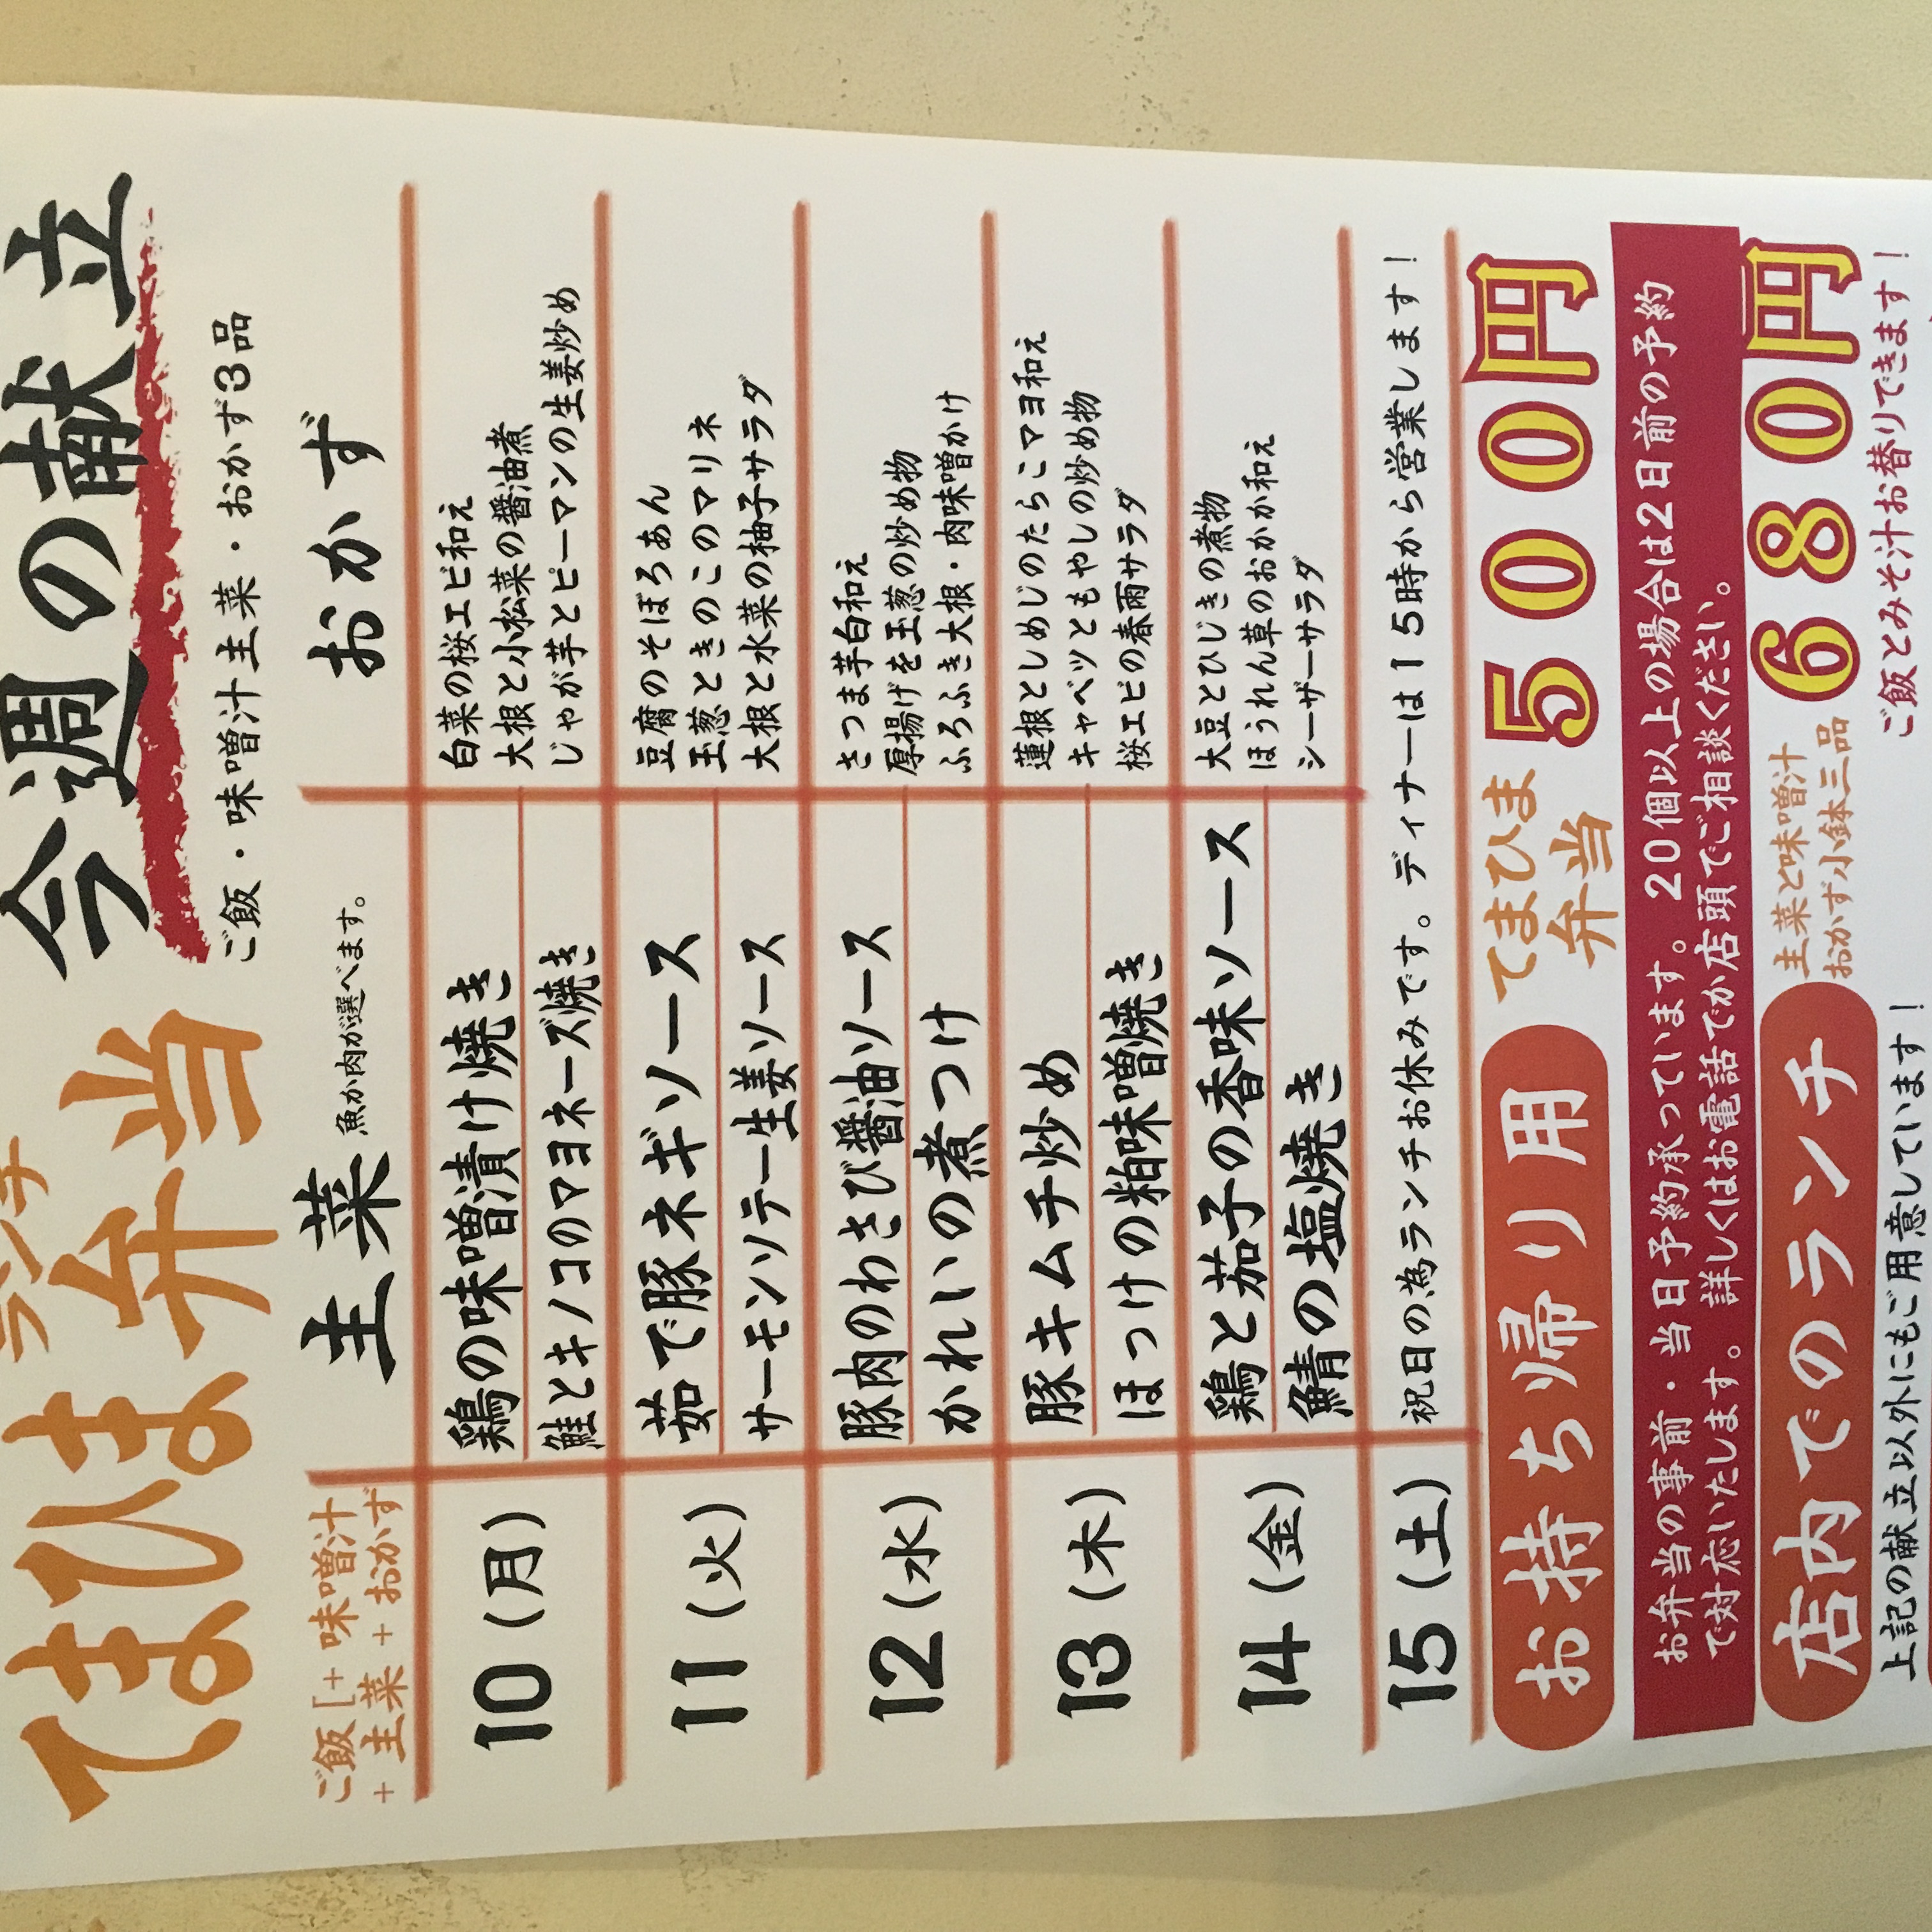 ランチ
てまひま弁当
今週の献立
ご飯・味噌汁主菜・おかず3品
ご飯[+ 味噌汁
+ 主菜 + おかず
主菜 魚か肉が選べます。
おかず
10 (月)
鶏の味噌漬け焼き
鮭とキノコのマヨネーズ焼き
白菜の桜エビ和え
大根と小松菜の醤油煮
じゃが芋とピーマンの生姜炒め
11 (火)
茹で豚ネギソース
サーモンソテー生姜ソース
豆腐のそぼろあん
玉葱ときのこのマリネ
大根と水菜の柚子サラダ
12 (水)
豚肉のわさび醤油ソース
かれいの煮つけ
さつま芋白和え
厚揚げを玉葱の炒め物
ふろふき大根・肉味噌かけ
13 (木)
豚キムチ炒め
ほっけの粕味噌焼き
蓮根としめじのたらこマヨ和え
キャベツともやしの炒め物
桜エビの春雨サラダ
14 (金)
鶏と茄子の香味ソース
鯖の塩焼き
大豆とひじきの煮物
ほうれん草のおかか和え
シーザーサラダ
15 (土)
祝日の為ランチお休みです。ディナーは15時から営業します!
お持ち帰り用
てまひま
弁当
500円
お弁当の事前・当日予約承っています。20個以上の場合は2日前の予約
で対応いたします。詳しくはお電話でか店頭でご相談ください。
店内でのランチ
主菜と味噌汁
おかず小鉢三品
680円
上記の献立以外にもご用意しています!
ご飯とみそ汁お替りできます!